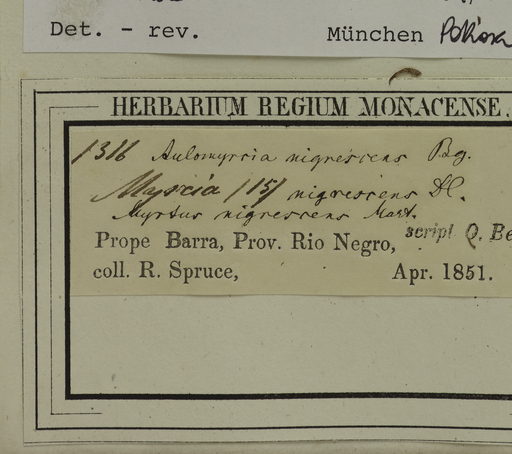 Det. - rev. München
HERBARIUM REGIUM MONACENSE.
1316 Aulomyrcia nigrescens Bg.
Myrcia /15/ nigrescens DC.
Myrtus nigrescens Mart.
Prope Barra, Prov. Rio Negro, script O. Be
coll. R. Spruce, Apr. 1851.